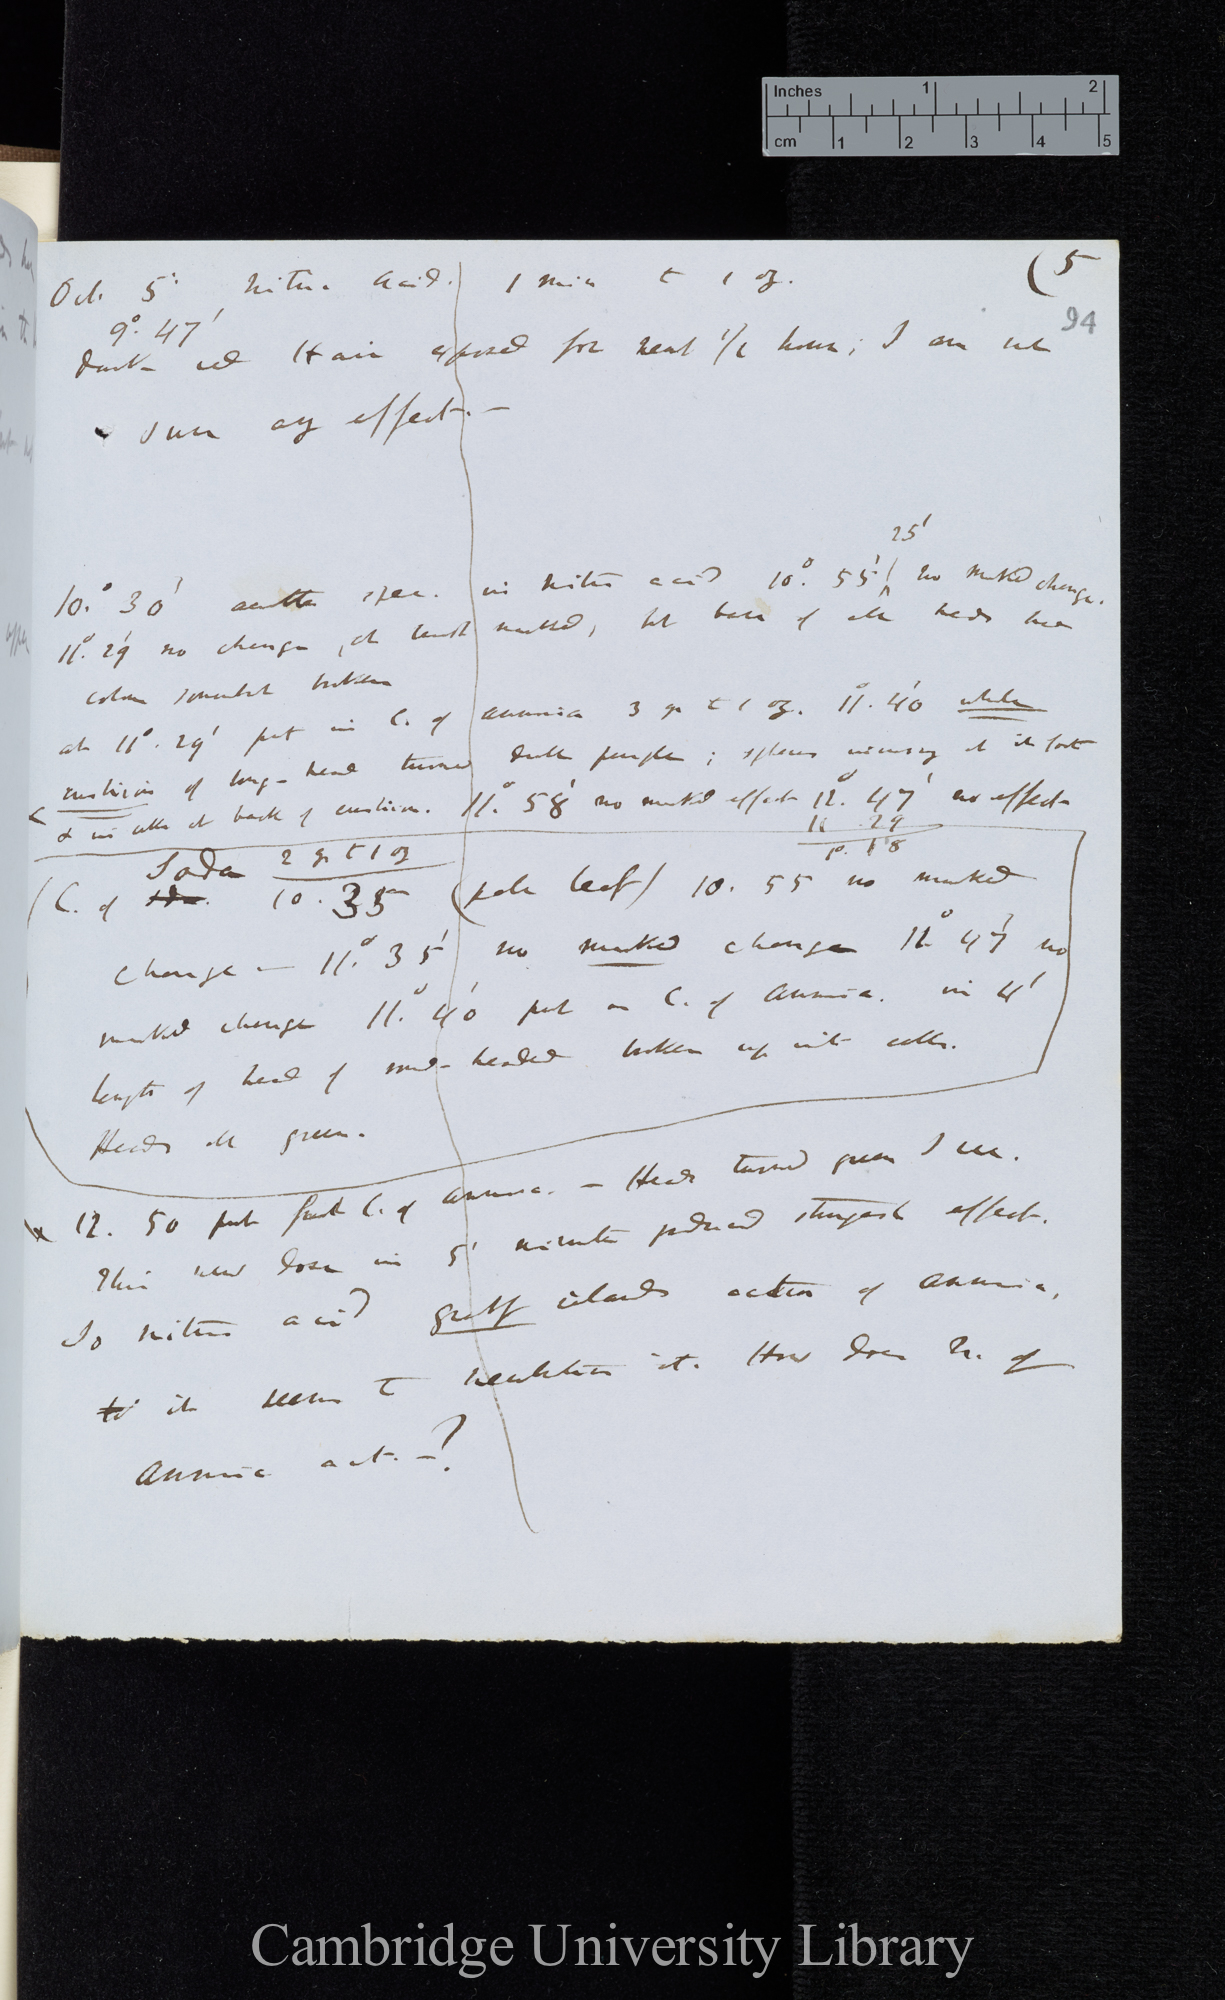 Inches 1 2
cm 1 2 3 4 5
(5
94
Oct. 5' Nitric Acid. 1 min to 1 oz.
9°. 47'
Dark red Hair exposed for near 1/2 hour; I am not
sure any effect. —
25'
10.° 30' another spec. in Nitric acid 10°. 55'/ no marked change.
11°. 29' no change, at least marked, but base of all heads have
colour somewhat broken
at 11°. 29' put in C. of Ammonia 3 gr to 1 oz. 11°. 40' whole
cushion of long-head turned dull purple; spheres moving at
& in cells at back of cushion. 11°. 58' no marked effect 12°. 47' no effect
11 29
1°. 18
Soda 2 gr to 1 oz
(C. of 10. 35 (pale leaf) 10. 55 no marked
change — 11°. 35' no marked change 12° 47' no
marked change 11°. 40' put in C. of Ammonia. in 4'
length of head of -headed broken up into cells.
Heads all green.
12. 50 put fresh C. of Ammonia. — Heads turned green I see.
This new dose in 5' minutes produced strongest effect.
So Nitric acid greatly retards action of Ammonia,
it seems to neutralise it. How does N. of
Ammonia act. —?
Cambridge University Library